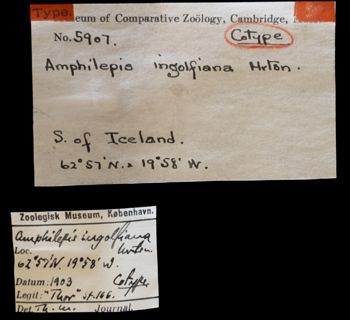 Type.
seum of Comparative Zoölogy, Cambridge,
No. 5907.
Cotype
Amphilepis ingolfiana Mrtsn.
S. of Iceland.
62° 57' N. x 19° 58' W.
Zoologisk Museum, København.
Amphilepis ingolfiana
Mrtsn.
Loc.
62° 57' N. 19° 58' W.
Datum: 1903
Cotype
Legit: "Thor" st. 166.
Det. Th. M. Journal.